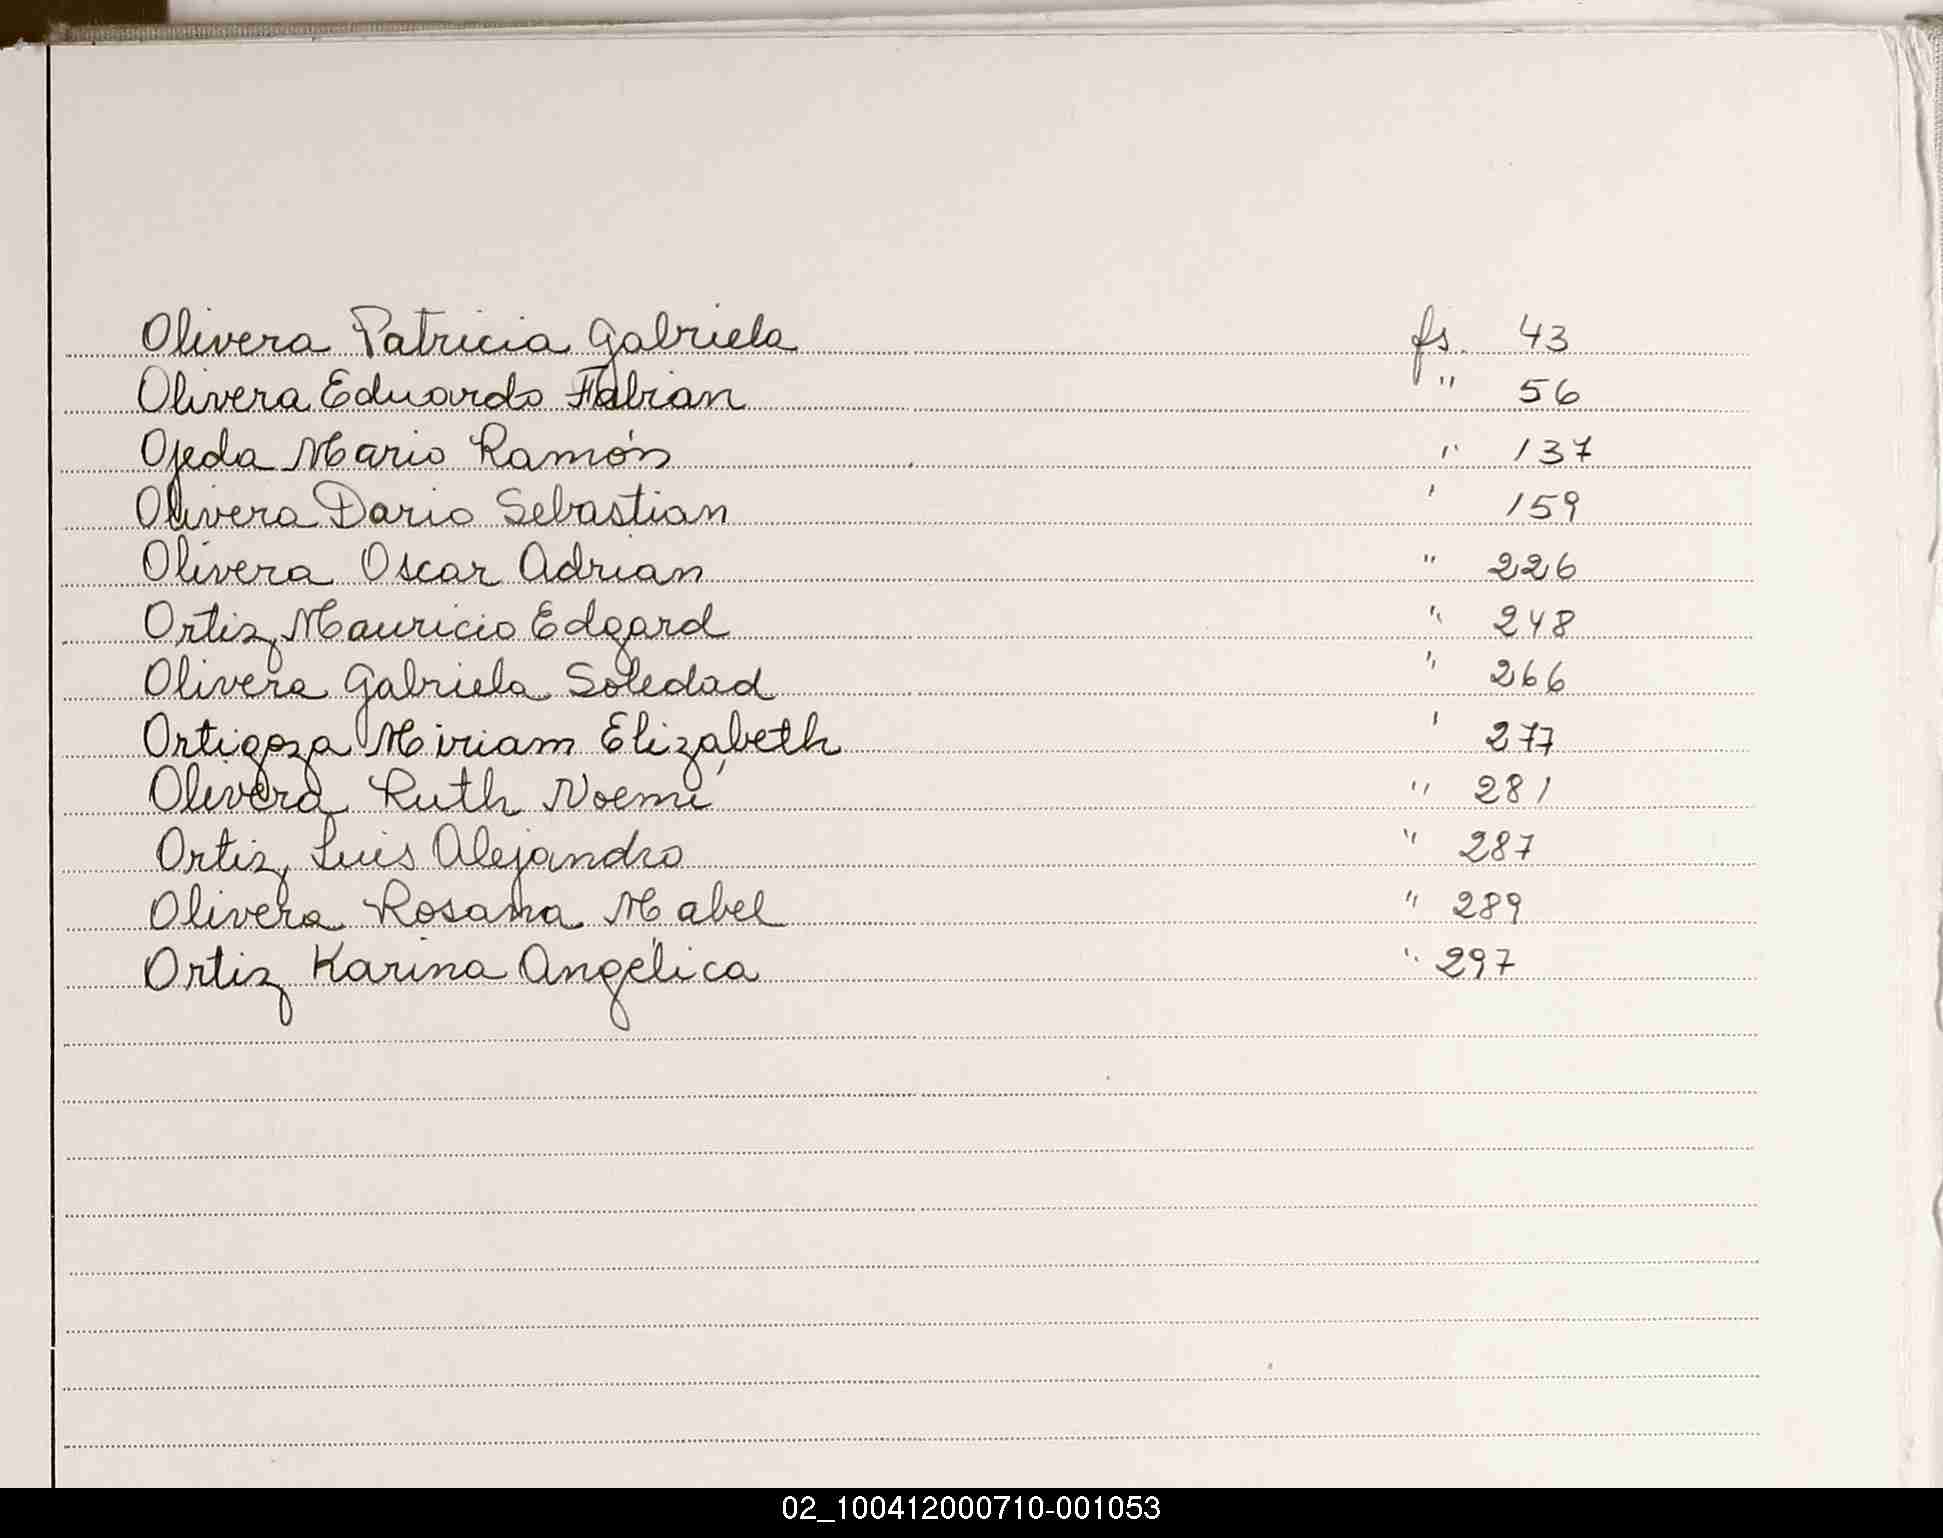 Olivera Patricia Gabriela fs. 43
Olivera Eduardo Fabian " 56
Ojeda Mario Ramón " 137
Olivera Dario Sebastian ' 159
Olivera Oscar Adrian " 226
Ortiz, Mauricio Edgard " 248
Olivera Gabriela Soledad " 266
Ortigoza Miriam Elizabeth ' 277
Olivera Ruth Noemí " 281
Ortiz, Luis Alejandro " 287
Olivera Rosana Mabel " 289
Ortiz Karina Angélica " 297
02_100412000710-001053